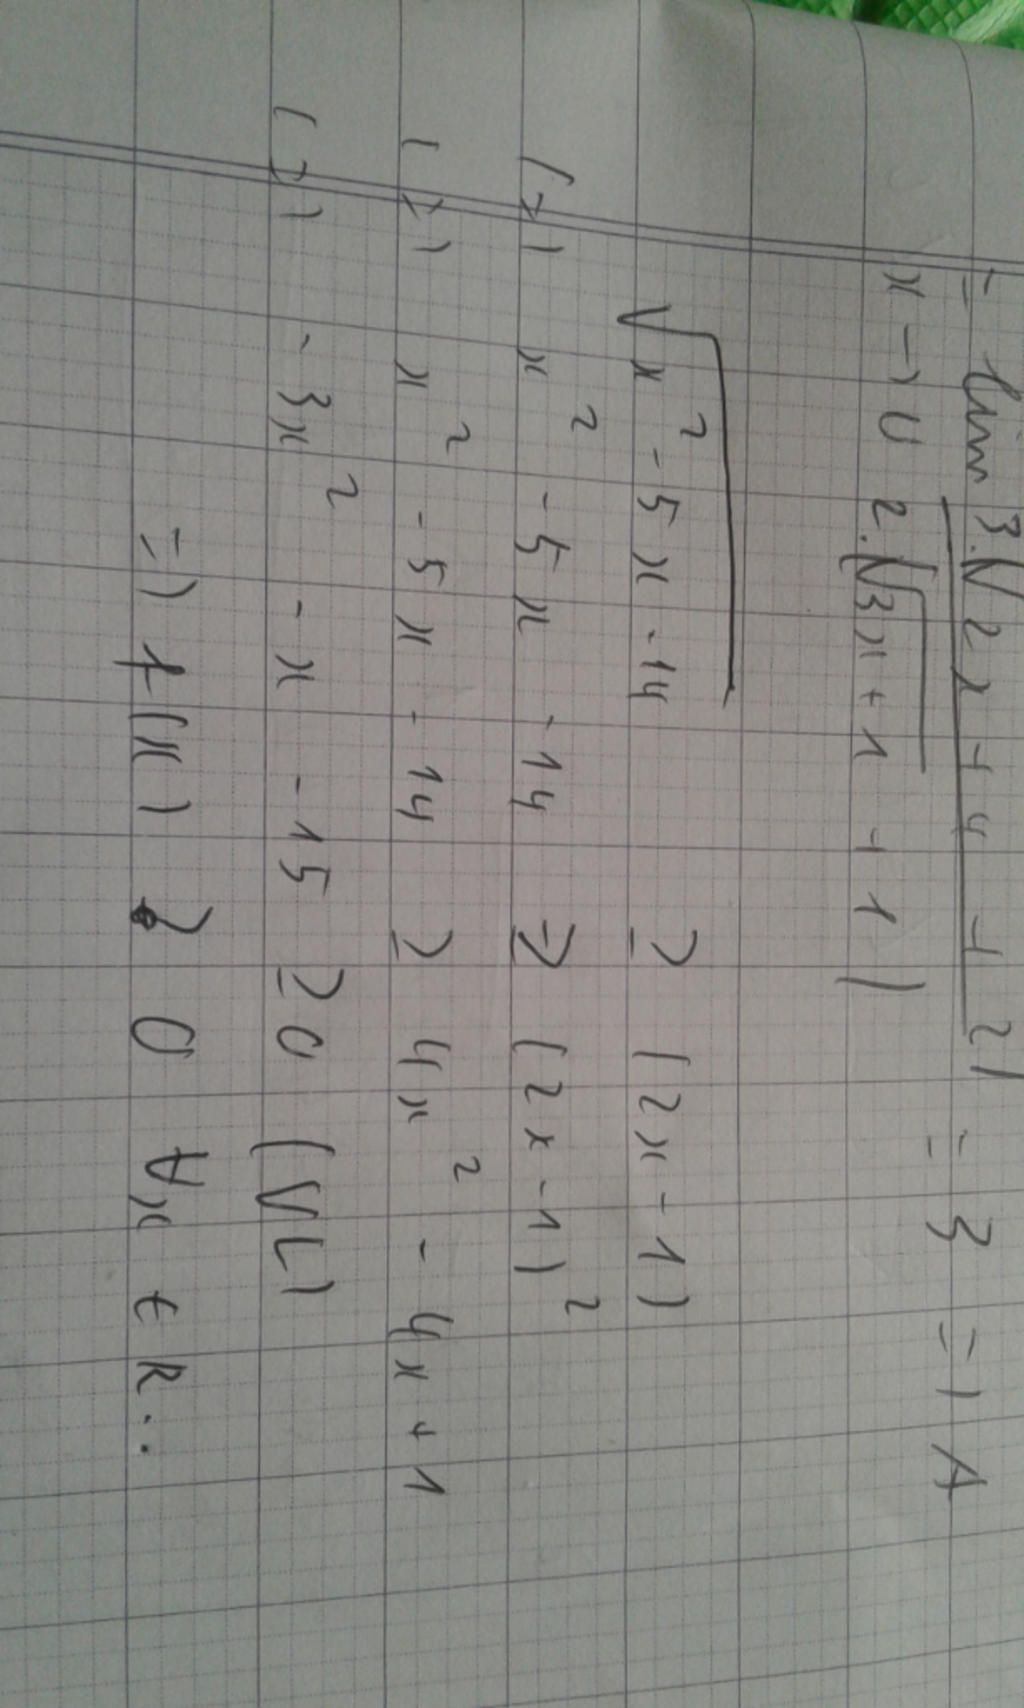 = lim 3.(√2x+4 + 2) = 3 => A
x -> 0 2.(√3x+1 + 1)
√x² - 5x - 14 ≥ (2x - 1)
<=> x² - 5x - 14 ≥ (2x - 1)²
<=> x² - 5x - 14 ≥ 4x² - 4x + 1
<=> -3x² - x - 15 ≥ 0 (VL)
=> f(x) 0 ∀x ∈ R